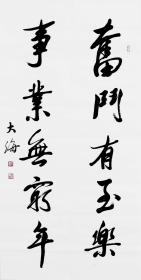 奮鬥有至樂
事業無窮年
大海